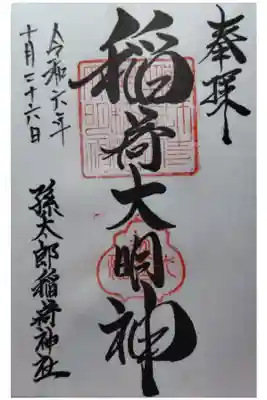 奉拝
稲荷大明神
孫太郎稲荷神社
令和六年
十月二十六日